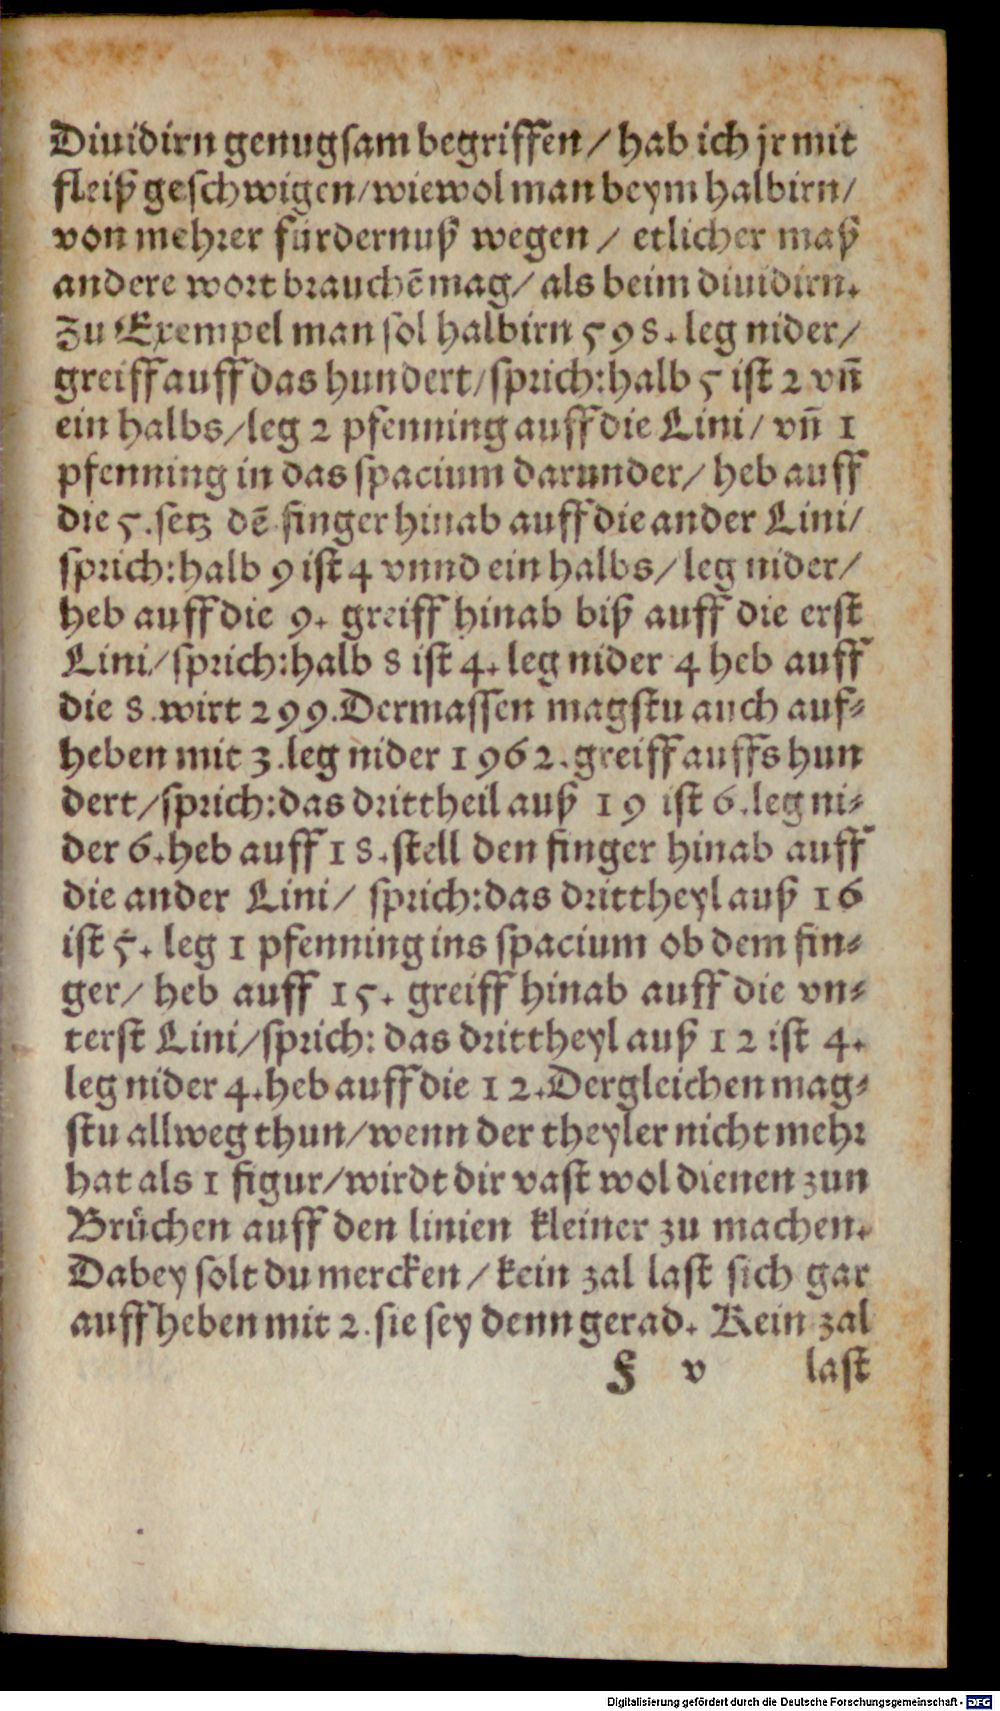 Diuidirn genugsam begriffen / hab ich jr mit
fleiß geschwigen / wiewol man beym halbirn /
von mehrer fürdernuß wegen / etlicher maß
andere wort brauchẽ mag / als beim diuidirn.
Zu Exempel man sol halbirn 598. leg nider /
greiff auff das hundert / sprich: halb 5 ist 2 vñ
ein halbs / leg 2 pfenning auff die Lini / vñ 1
pfenning in das spacium darunder / heb auff
die 5. setz dẽ finger hinab auff die ander Lini /
sprich: halb 9 ist 4 vnnd ein halbs / leg nider /
heb auff die 9. greiff hinab biß auff die erst
Lini / sprich: halb 8 ist 4. leg nider 4 heb auff
die 8. wirt 299. Dermassen magstu auch auf⸗
heben mit 3. leg nider 1962. greiff auffs hun
dert / sprich: das drittheil auß 19 ist 6. leg ni⸗
der 6. heb auff 18. stell den finger hinab auff
die ander Lini / sprich: das drittheyl auß 16
ist 5. leg 1 pfenning ins spacium ob dem fin⸗
ger / heb auff 15. greiff hinab auff die vn⸗
terst Lini / sprich: das drittheyl auß 12 ist 4.
leg nider 4. heb auff die 12. Dergleichen mag⸗
stu allweg thun / wenn der theyler nicht mehr
hat als 1 figur / wirdt dir vast wol dienen zun
Brüchen auff den linien kleiner zu machen.
Dabey solt du mercken / kein zal last sich gar
auffheben mit 2. sie sey denn gerad. Kein zal
F v last
Digitalisierung gefördert durch die Deutsche Forschungsgemeinschaft - DFG